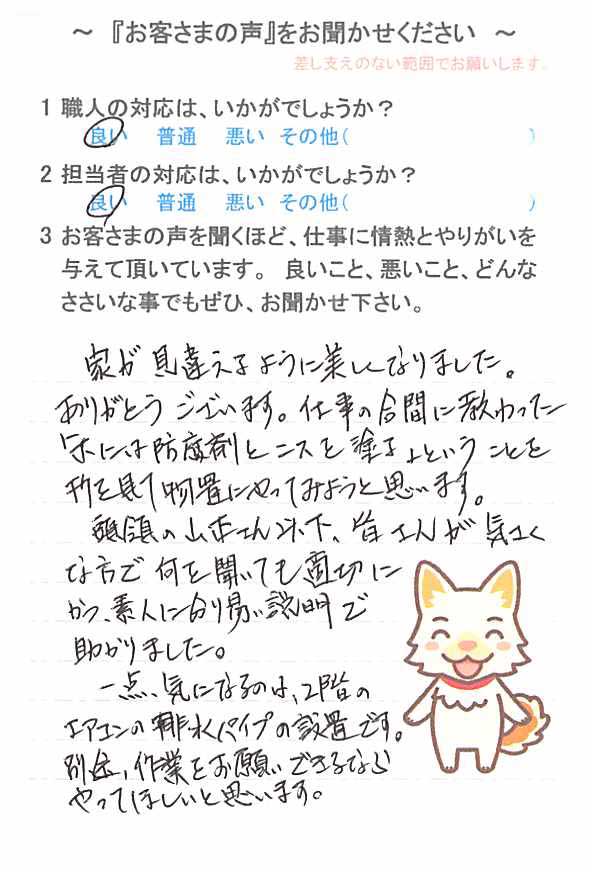 ～ 『お客さまの声』をお聞かせください ～
差し支えのない範囲でお願いします。
1 職人の対応は、いかがでしょうか？
良い 普通 悪い その他( )
2 担当者の対応は、いかがでしょうか？
良い 普通 悪い その他( )
3 お客さまの声を聞くほど、仕事に情熱とやりがいを
与えて頂いています。 良いこと、悪いこと、どんな
ささいな事でもぜひ、お聞かせ下さい。
家が見違えるように美しくなりました。
ありがとうございます。仕事の合間に教わった
「木には防腐剤とニスを塗る」ということを
折を見て物置にやってみようと思います。
頭領の山正さん以下、皆さんが気さく
な方で何を聞いても適切に
かつ、素人に分り易い説明で
助かりました。
一点、気になるのは、2階の
エアコンの排水パイプの設置です。
別途、作業をお願いできるなら
やってほしいと思います。